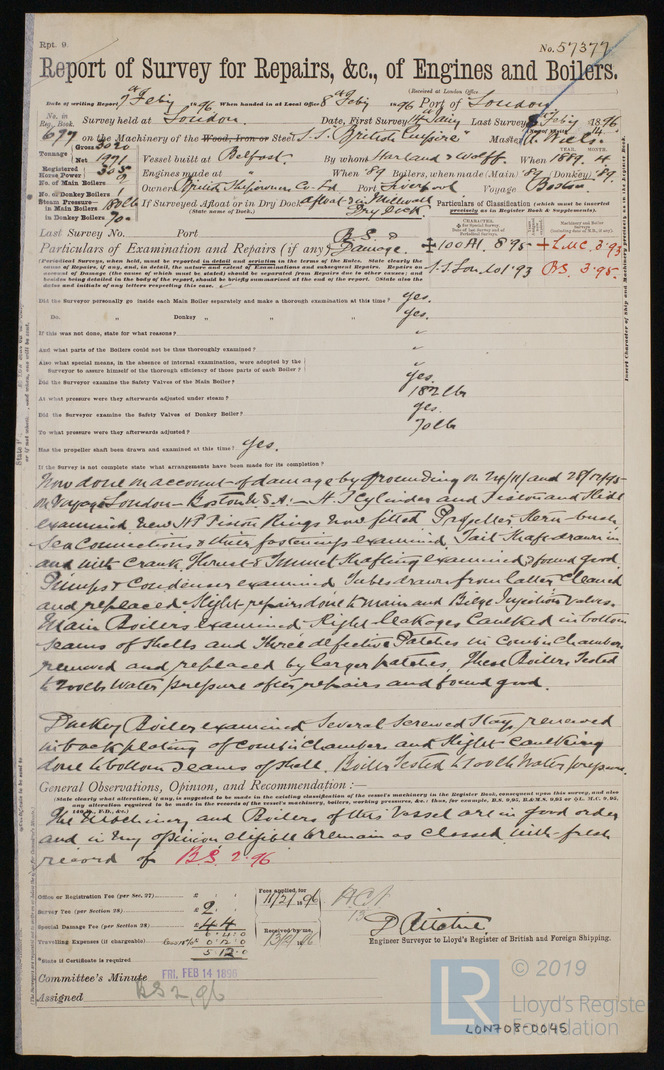 Rpt. 9.
No. 57377
Report of Survey for Repairs, &c., of Engines and Boilers.
(Received at London Office
Date of writing Report 7 Feby 1896 When handed in at Local Office 8 Feby 1896 Port of London
No. in Reg. Book. Survey held at London. Date, First Survey Jany Last Survey 8 Feby 1896
677 on the Machinery of the Wood, Iron or Steel S.S. "British Empire" Master
Tonnage Gross 3020 Net 1991 Vessel built at Belfast. By whom Harland & Wolff. When 1889. 4.
Registered Horse Power 305 Engines made at " When '89 Boilers, when made (Main) '89 (Donkey) '89.
No. of Main Boilers 2
No. of Donkey Boilers 1 Owners British Shipowners Co Ld Port Liverpool Voyage Boston
Steam Pressure in Main Boilers 180lb in Donkey Boilers 70 If Surveyed Afloat or in Dry Dock afloat & in Millwall Dry Dock
(State name of Dock.)
Particulars of Classification (which must be inserted precisely as in Register Book & Supplements).
Last Survey No. Port
Particulars of Examination and Repairs (if any) B.S. & Damage.
100A1. 8.95 L.M.C. 3.93
S.S. Lon. No1.93 B.S. 3.95.
(Periodical Surveys, when held, must be reported in detail and seriatim in terms of the Rules. State clearly the cause of Repairs, if any, and, in detail, the nature and extent of Examinations and subsequent Repairs. Repairs on account of Damage (the cause of which must be stated) should be separated from Repairs due to other causes; and besides being detailed in the body of the report, should be briefly summarized at the end of the report. State also the dates and initials of any letters respecting this case.
Did the Surveyor personally go inside each Main Boiler separately and make a thorough examination at this time? yes.
Do. " Donkey " " " yes.
If this was not done, state for what reasons?
And what parts of the Boilers could not be thus thoroughly examined?
Also what special means, in the absence of internal examination, were adopted by the Surveyor to assure himself of the thorough efficiency of those parts of each Boiler?
Did the Surveyor examine the Safety Valves of the Main Boiler? yes.
At what pressure were they afterwards adjusted under steam? 182 lbs
Did the Surveyor examine the Safety Valves of Donkey Boiler? yes.
To what pressure were they afterwards adjusted? 70 lb
Has the propeller shaft been drawn and examined at this time? Yes.
If the Survey is not complete state what arrangements have been made for its completion?
Now done on account of damage by grounding on 24/11/ and 28/12/95
on Voyage London – Boston U.S.A: – H.P. Cylinder and Piston and Slide
examined New H.P. Piston Rings now fitted. Propeller, Stern bush,
Sea Connections & their fastenings examined. Tail Shaft drawn in
and with Crank Thrust & Tunnel Shafting examined & found good.
Pumps & Condenser examined. Tubes drawn from latter, Cleaned
and replaced. Slight repairs done to main and Bilge Injection Valves.
Main Boilers examined. Slight leakages Caulked in bottom
Seams of Shells and Three defective Patches in Combn Chambers
removed and replaced by larger patches. These Boilers Tested
to 200 lbs Water pressure after repairs and found good.
Donkey Boiler examined Several Screwed Stays renewed
in back plating of Combn Chambers and Slight Caulking
done to bottom Seams of Shell. Boiler Tested to 100 lb Water pressure.
General Observations, Opinion, and Recommendation:—
(State clearly what alteration, if any, is suggested to be made in the existing classification of the vessel's machinery in the Register Book, consequent upon this survey, and also any alteration required to be made in the records of the vessel's machinery, boilers, working pressures, &c.: thus, for example, B.S. 9.95, B.&M.S. 9.95 or L.M.C. 9.95,
The Machinery and Boilers of this Vessel are in good order
and in my opinion eligible to remain as Classed with fresh
record of B.S. 2.96
Office or Registration Fee (per Sec. 27) £ : :
Survey Fee (per Section 28) £ 2 : :
Special Damage Fee (per Section 28) £ 4 4
6.4.0
Travelling Expenses (if chargeable) less 10% £ 0.12.0
5.12.0
Fees applied for 11/2/1896
Received by me, 13/2/1896
*State if Certificate is required
D Ritchie
Engineer Surveyor to Lloyd's Register of British and Foreign Shipping.
Committee's Minute FRI. FEB 14 1896
Assigned BS 2,96
LR © 2019
Lloyd's Register
Foundation
LON708-0045